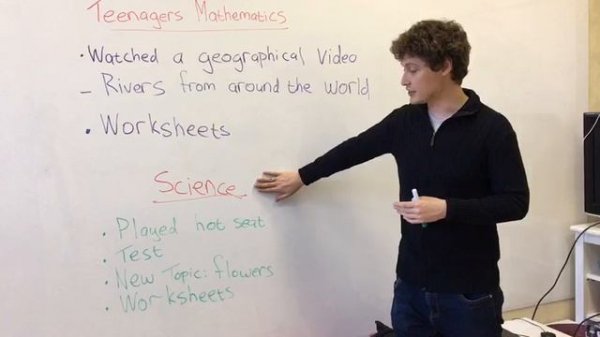 Teenagers Mathematics
• Watched a geographical Video
– Rivers from around the world
• Worksheets
Science
• Played hot seat
• Test
• New Topic: flowers
• Worksheets